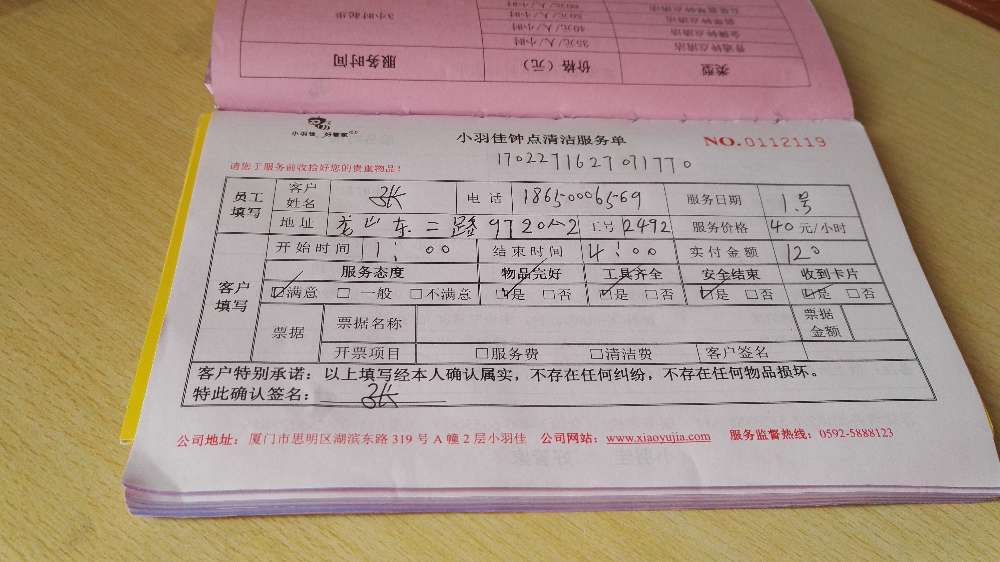 类型 价格（元） 服务时间
普通钟点清洁 35元/人/小时
金牌钟点清洁 40元/人/小时 3小时起步
50元/人/小时
60元/人/小时
小羽佳 好管家
小羽佳钟点清洁服务单
NO.0112119
17022711627071770
请您于服务前收拾好您的贵重物品！
员工填写 客户姓名 张 电话 18650006569 服务日期 1号
地址 龙山东二路 工号 2492 服务价格 40元/小时
客户填写 开始时间 11:00 结束时间 14:00 实付金额 120
服务态度 物品完好 工具齐全 安全结束 收到卡片
☑满意 □一般 □不满意 ☑是 □否 ☑是 □否 ☑是 □否 ☑是 □否
票据 票据名称 票据金额
开票项目 □服务费 □清洁费 客户签名
客户特别承诺：以上填写经本人确认属实，不存在任何纠纷，不存在任何物品损坏。
特此确认签名： 张
公司地址：厦门市思明区湖滨东路 319 号 A 幢 2 层小羽佳 公司网站：www.xiaoyujia.com 服务监督热线：0592-5888123